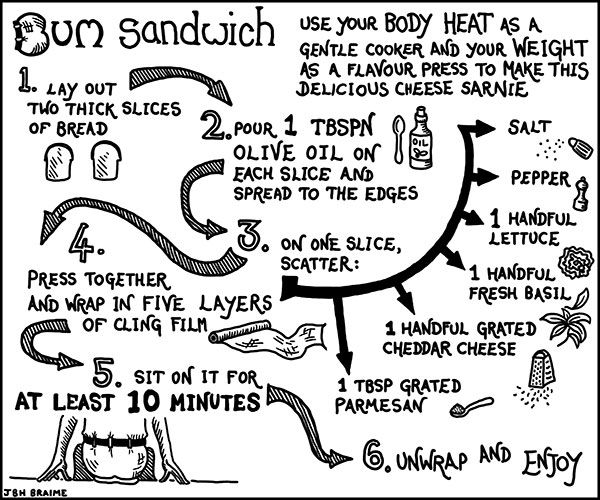 Bum Sandwich
USE YOUR BODY HEAT AS A
GENTLE COOKER AND YOUR WEIGHT
AS A FLAVOUR PRESS TO MAKE THIS
DELICIOUS CHEESE SARNIE
1. LAY OUT
TWO THICK SLICES
OF BREAD
2. POUR 1 TBSPN
OLIVE OIL ON
EACH SLICE AND
SPREAD TO THE EDGES
OIL
3. ON ONE SLICE,
SCATTER:
SALT
PEPPER
1 HANDFUL
LETTUCE
1 HANDFUL
FRESH BASIL
1 HANDFUL GRATED
CHEDDAR CHEESE
1 TBSP GRATED
PARMESAN
4.
PRESS TOGETHER
AND WRAP IN FIVE LAYERS
OF CLING FILM
5. SIT ON IT FOR
AT LEAST 10 MINUTES
6. UNWRAP AND ENJOY
JBH BRAIME